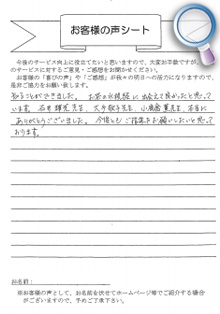 お客様の声シート
今後のサービス向上に役立てたいと思いますので、大変お手数ですが、
のサービスに対するご意見・ご感想をお聞かせください。
お客様の「喜びの声」や「ご感想」が我々の明日への活力になりますので、
是非ご協力をお願い致します。
知ることができました。お茶の水現館に出会えて良かったと思って
います。石井 先生、大手 先生、小 先生、本当に
ありがとうございました。今後ともご指導お願いしたいと思って
おります。
お名前:
※お客様の声として、お名前を伏せてホームページ等でご紹介する場合
がございますので、予めご了承下さい。